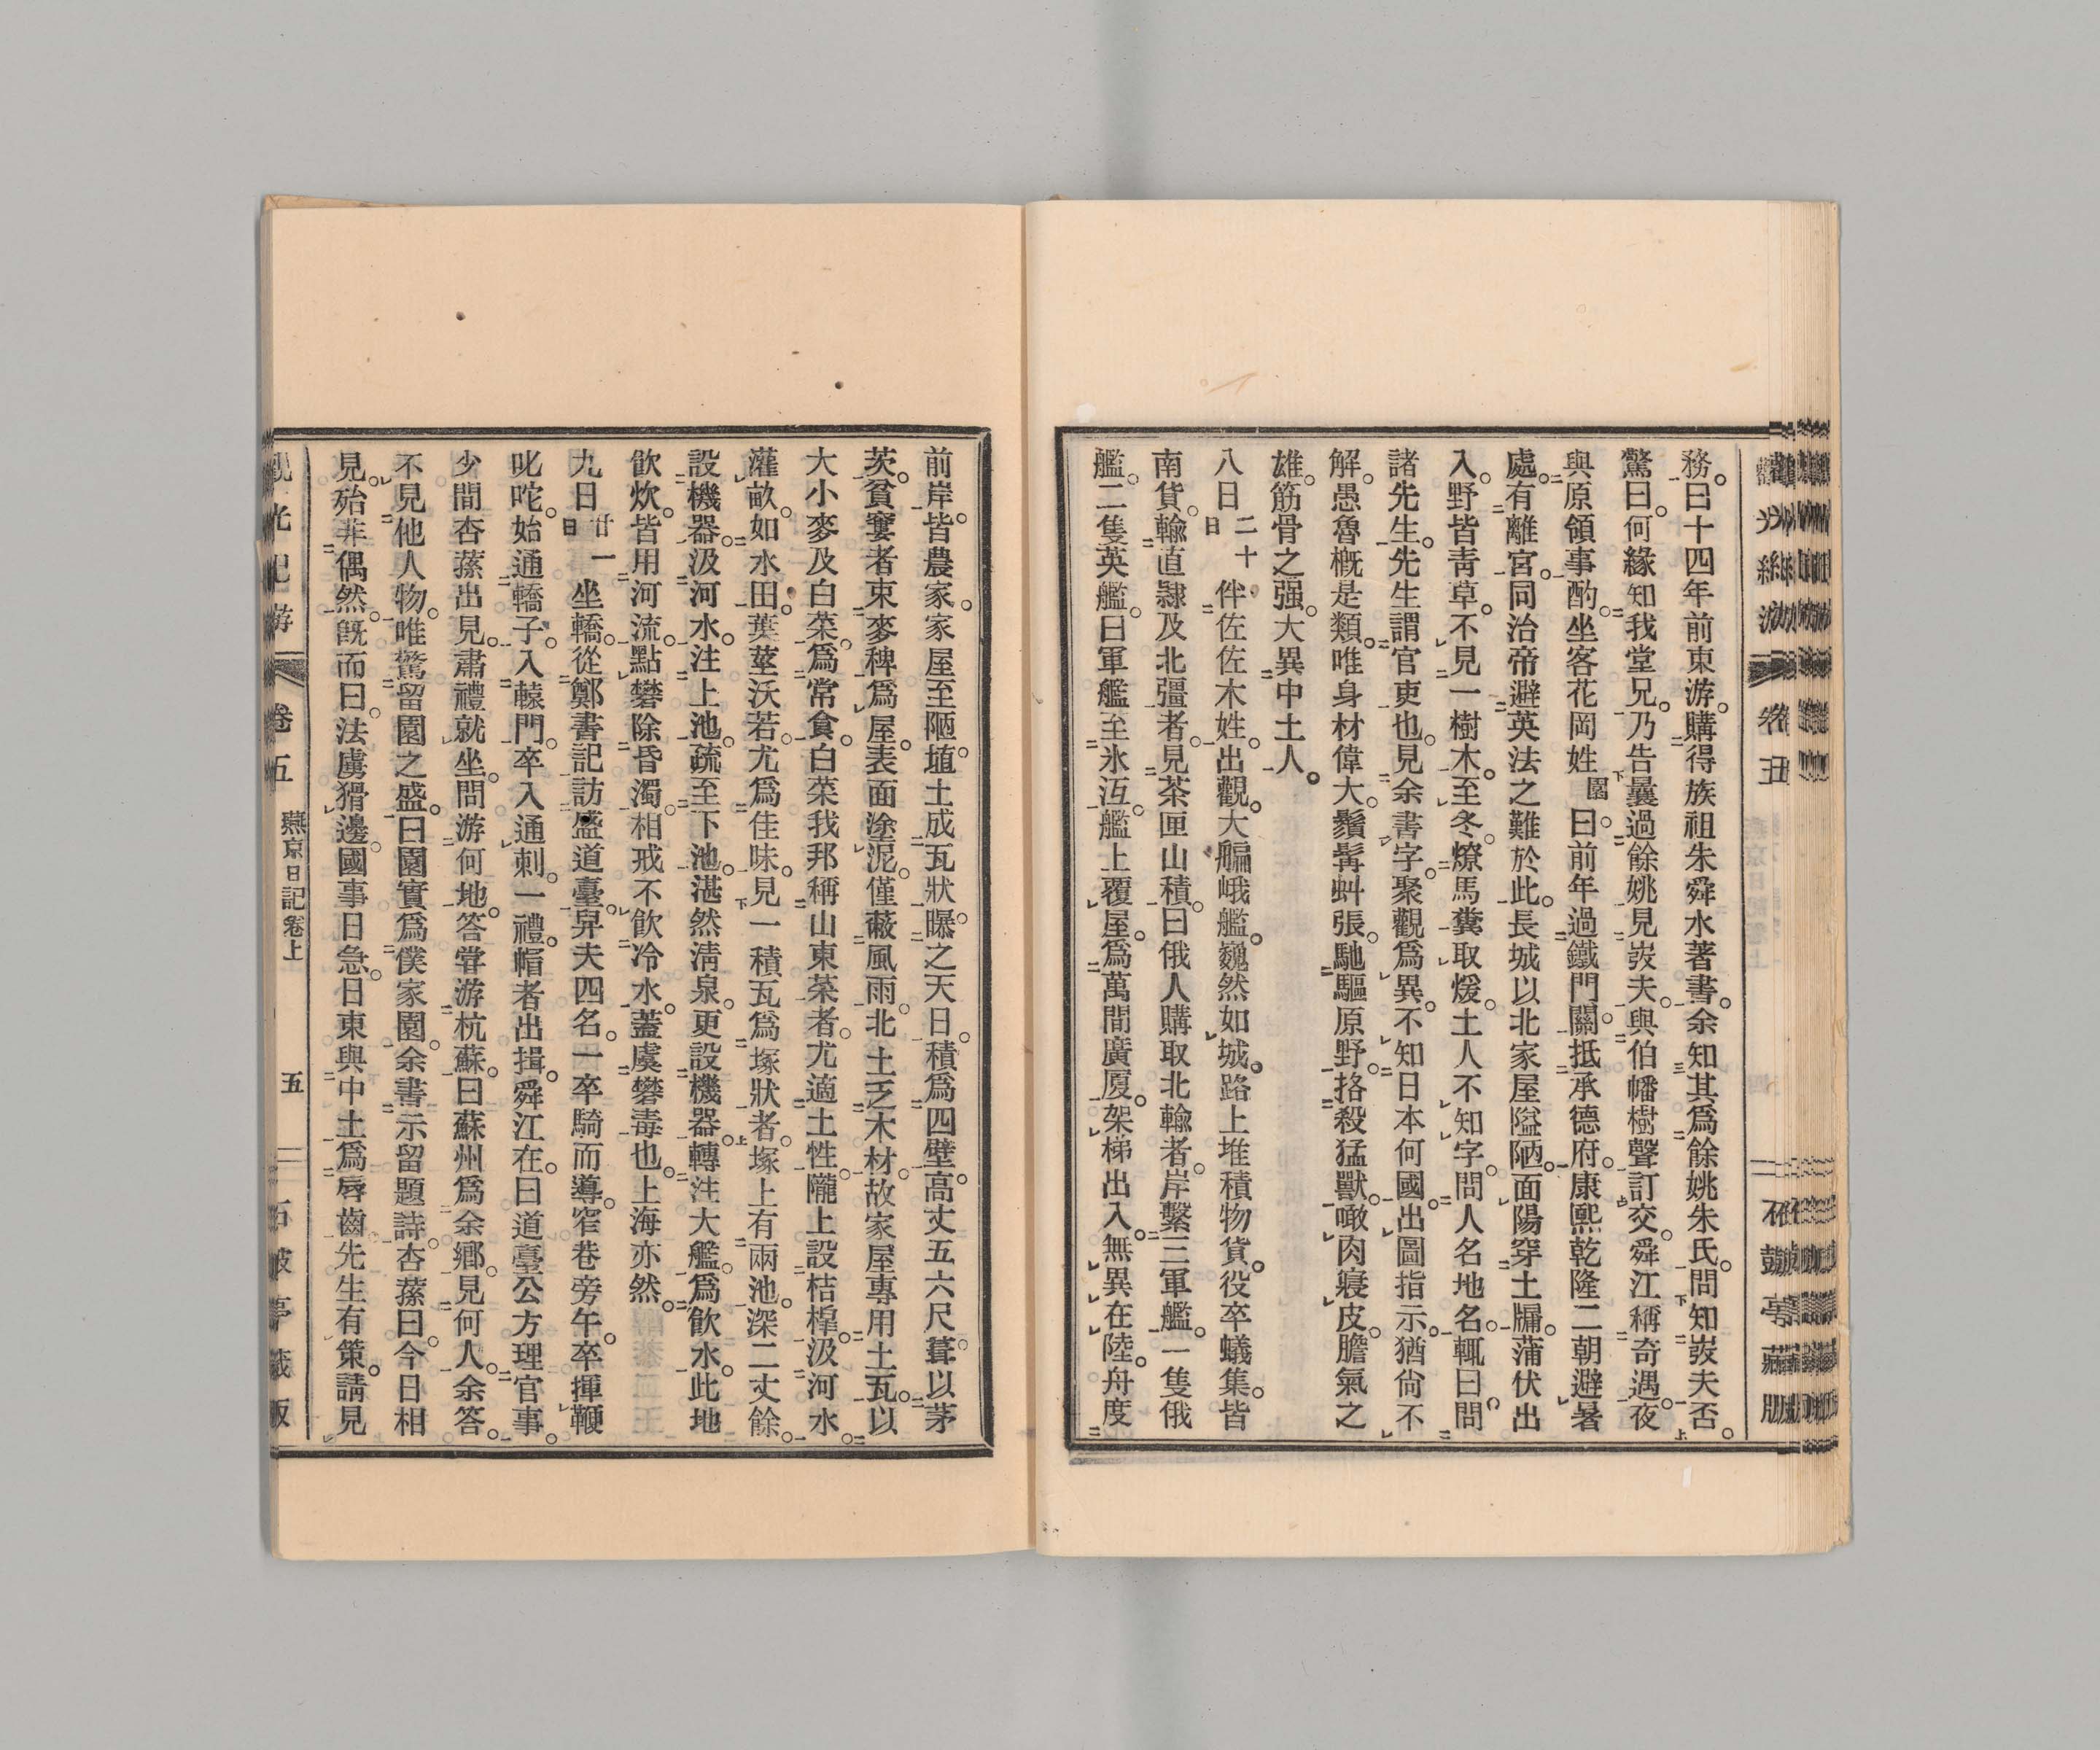 務。曰十四年前東游。購得族祖朱舜水著書。余知其爲餘姚朱氏。問知㱿夫否。
驚曰。何緣知我堂兄。乃告曩過餘姚見㱿夫。與伯幡樹聲訂交。舜江稱奇遇。夜
與原領事酌。坐客花岡姓 園 曰。前年過鐵門關。抵承德府。康熙乾隆二朝避暑
處。有離宮。同治帝避英法之難於此。長城以北家屋隘陋。面陽穿土牖。蒲伏出
入。野皆靑草。不見一樹木。至冬。燎馬糞取煖。土人不知字。問人名地名。輒曰問
諸先生。先生謂官吏也。見余書字。聚觀爲異。不知日本何國。出圖指示。猶尙不
解。愚魯槪是類。唯身材偉大。鬚髯蚪張。馳驅原野。挌殺猛獸。噉肉寢皮。膽氣之
雄。筋骨之强。大異中土人。
八日 二十日 伴佐佐木姓。出觀。大艑峨艦。巍然如城。路上堆積物貨。役卒蟻集。皆
南貨。輸直隷及北彊者。見茶匣山積。曰俄人購取北輸者。岸繫三軍艦。一隻俄
艦。二隻英艦。曰軍艦至氷冱。艦上覆屋。爲萬間廣厦。架梯出入。無異在陸。舟度
前岸。皆農家。家屋至陋。埴土成瓦狀。曝之天日。積爲四壁。高丈五六尺。葺以茅
茨。貧窶者束麥稗爲屋。表面塗泥。僅蔽風雨。北土乏木材。故家屋專用土瓦。以
大小麥及白菜。爲常食。白菜我邦稱山東菜者。尤適土性。隴上設桔槹。汲河水。
灌畝。如水田。葉莖沃若。尤爲佳味。見一積瓦爲塚狀者。塚上有兩池。深二丈餘。
設機器。汲河水。注上池。疏至下池。湛然淸泉。更設機器。轉注大艦。爲飮水。此地
飮炊。皆用河流。點礬除昏濁。相戒不飮冷水。蓋虞礬毒也。上海亦然。
九日 廿一日 坐轎。從鄭書記訪盛道臺。舁夫四名。一卒騎而導。窄巷旁午。卒揮鞭
叱咤。始通轎子。入轅門。卒入通刺。一禮帽者出揖。舜江在。曰道臺公方理官事。
少間杏蓀出見。肅禮就坐。問游何地。答甞游杭蘇。曰蘇州爲余鄉。見何人。余答。
不見他人物。唯驚留園之盛。曰園實爲僕家園。余書示留題詩。杏蓀曰。今日相
見。殆非偶然。旣而曰。法虜猾邊。國事日急。日東與中土爲脣齒。先生有策。請見
觀光紀游 卷五 燕京日記卷上 五 石鼓亭藏版